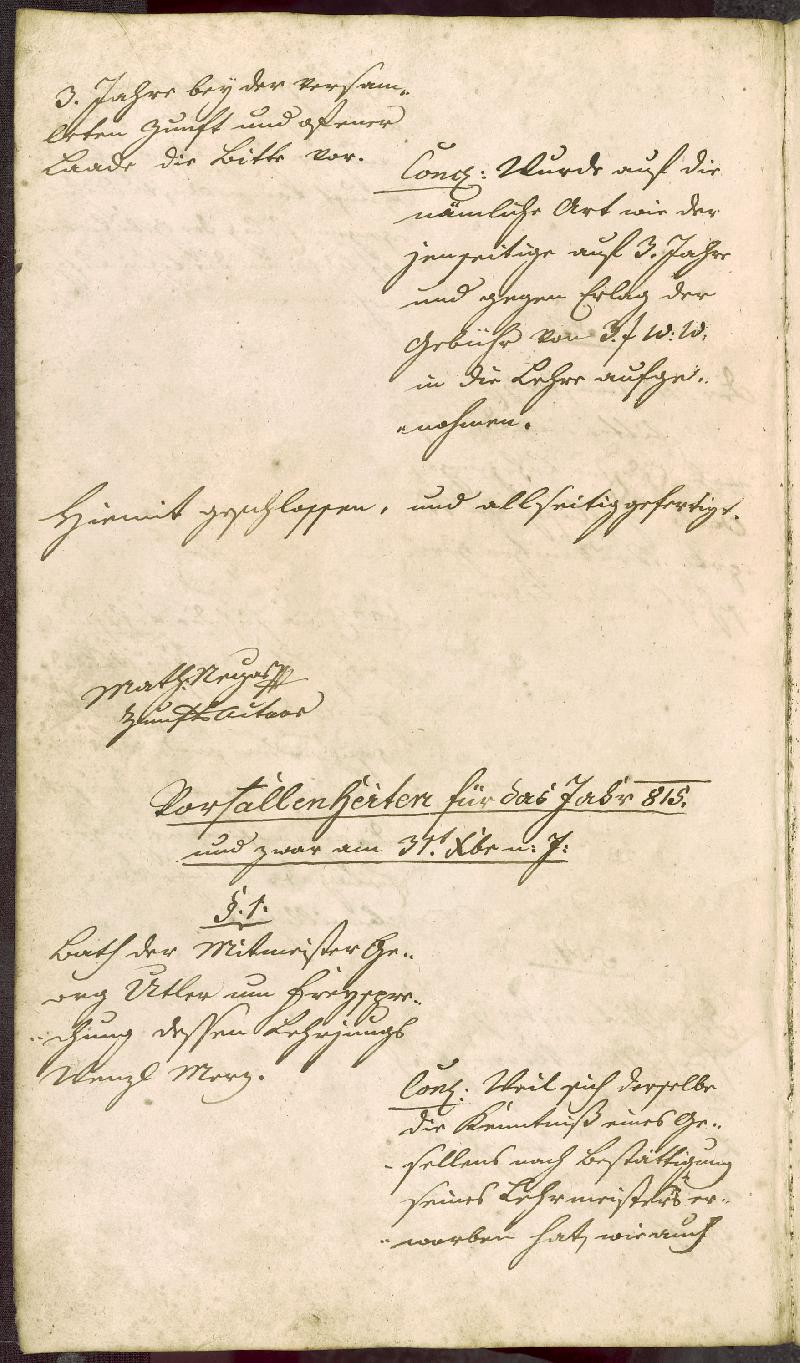 3. Jahre bey der versam„
leten Zunft und offener
Laade die Bitte vor.
Concl: Wurde auf die
nämliche Art wie der
jenseitige auf 3. Jahre
und gegen Erlag der
Gebühr von 3. f W: W:
in die Lehre aufge„
„nohmen.
Hiemit geschlossen, und allseitig gefertigt.
Math:
Zunft Actuar
Vorfallenheiten für das Jahr 815.
und zwar am 31t Xbr n: J:
§. 1.
Bath der Mitmeister Ge„
org Utler um Freyspre„
„chung dessen Lehrjungs
Wenzl Merz.
Concl: Weil sich derselbe
die Kenntniß eines Ge„
„sellens nach Bestättigung
seines Lehrmeisters er„
„worben hat, wie auch